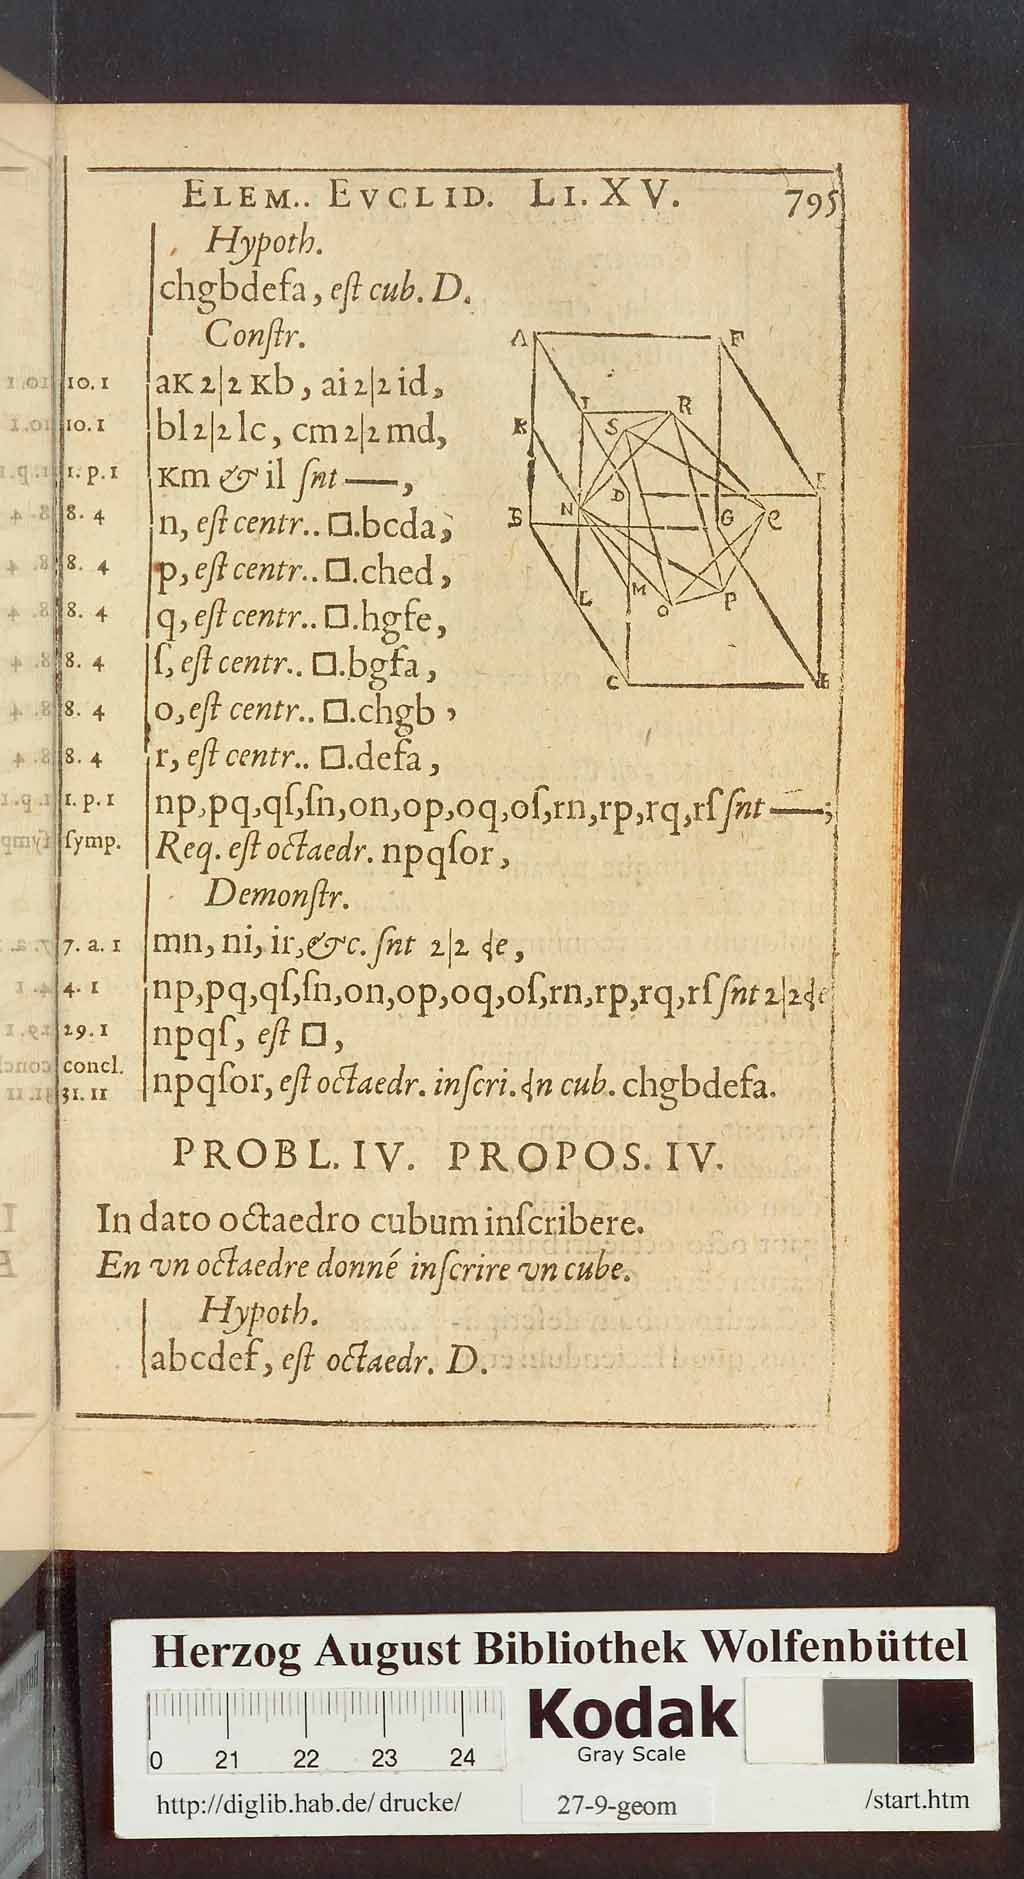 ELEM.. EVCLID. LI. XV. 795
Hypoth.
chgbdefa, eſt cub. D.
Conſtr.
10. 1 aK 2|2 Kb, ai 2|2 id,
10. 1 bl 2|2 lc, cm 2|2 md,
1. p. 1 Km & il ſnt —,
8. 4 n, eſt centr.. □.bcda;
8. 4 p, eſt centr.. □.ched,
8. 4 q, eſt centr.. □.hgfe,
8. 4 ſ, eſt centr.. □.bgfa,
8. 4 o, eſt centr.. □.chgb,
8. 4 r, eſt centr.. □.defa,
1. p. 1 np,pq,qſ,ſn,on,op,oq,oſ,rn,rp,rq,rſ ſnt —;
ſymp. Req. eſt octaedr. npqſor,
Demonſtr.
7. a. 1 mn, ni, ir, &c. ſnt 2|2 de,
4. 1 np,pq,qſ,ſn,on,op,oq,oſ,rn,rp,rq,rſ ſnt 2|2 de
29. 1 npqſ, eſt □,
concl.
31. 11 npqſor, eſt octaedr. inſcri. in cub. chgbdefa.
A F
I R
K S
D E
N G Q
B
L M O P
C H
PROBL. IV. PROPOS. IV.
In dato octaedro cubum inſcribere.
En vn octaedre donné inſcrire vn cube.
Hypoth.
abcdef, eſt octaedr. D.
Herzog August Bibliothek Wolfenbüttel
Kodak
Gray Scale
0 21 22 23 24
http://diglib.hab.de/drucke/ 27-9-geom /start.htm